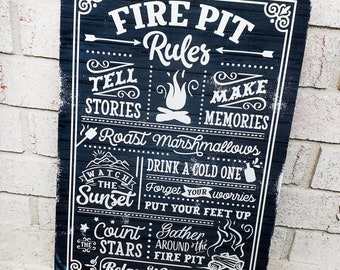 FIRE PIT
Rules
TELL
STORIES
MAKE
MEMORIES
Roast Marshmallows
WATCH
THE
Sunset
DRINK A COLD ONE
Forget YOUR worries
PUT YOUR FEET UP
Count
THE
STARS
Gather
AROUND the
FIRE PIT